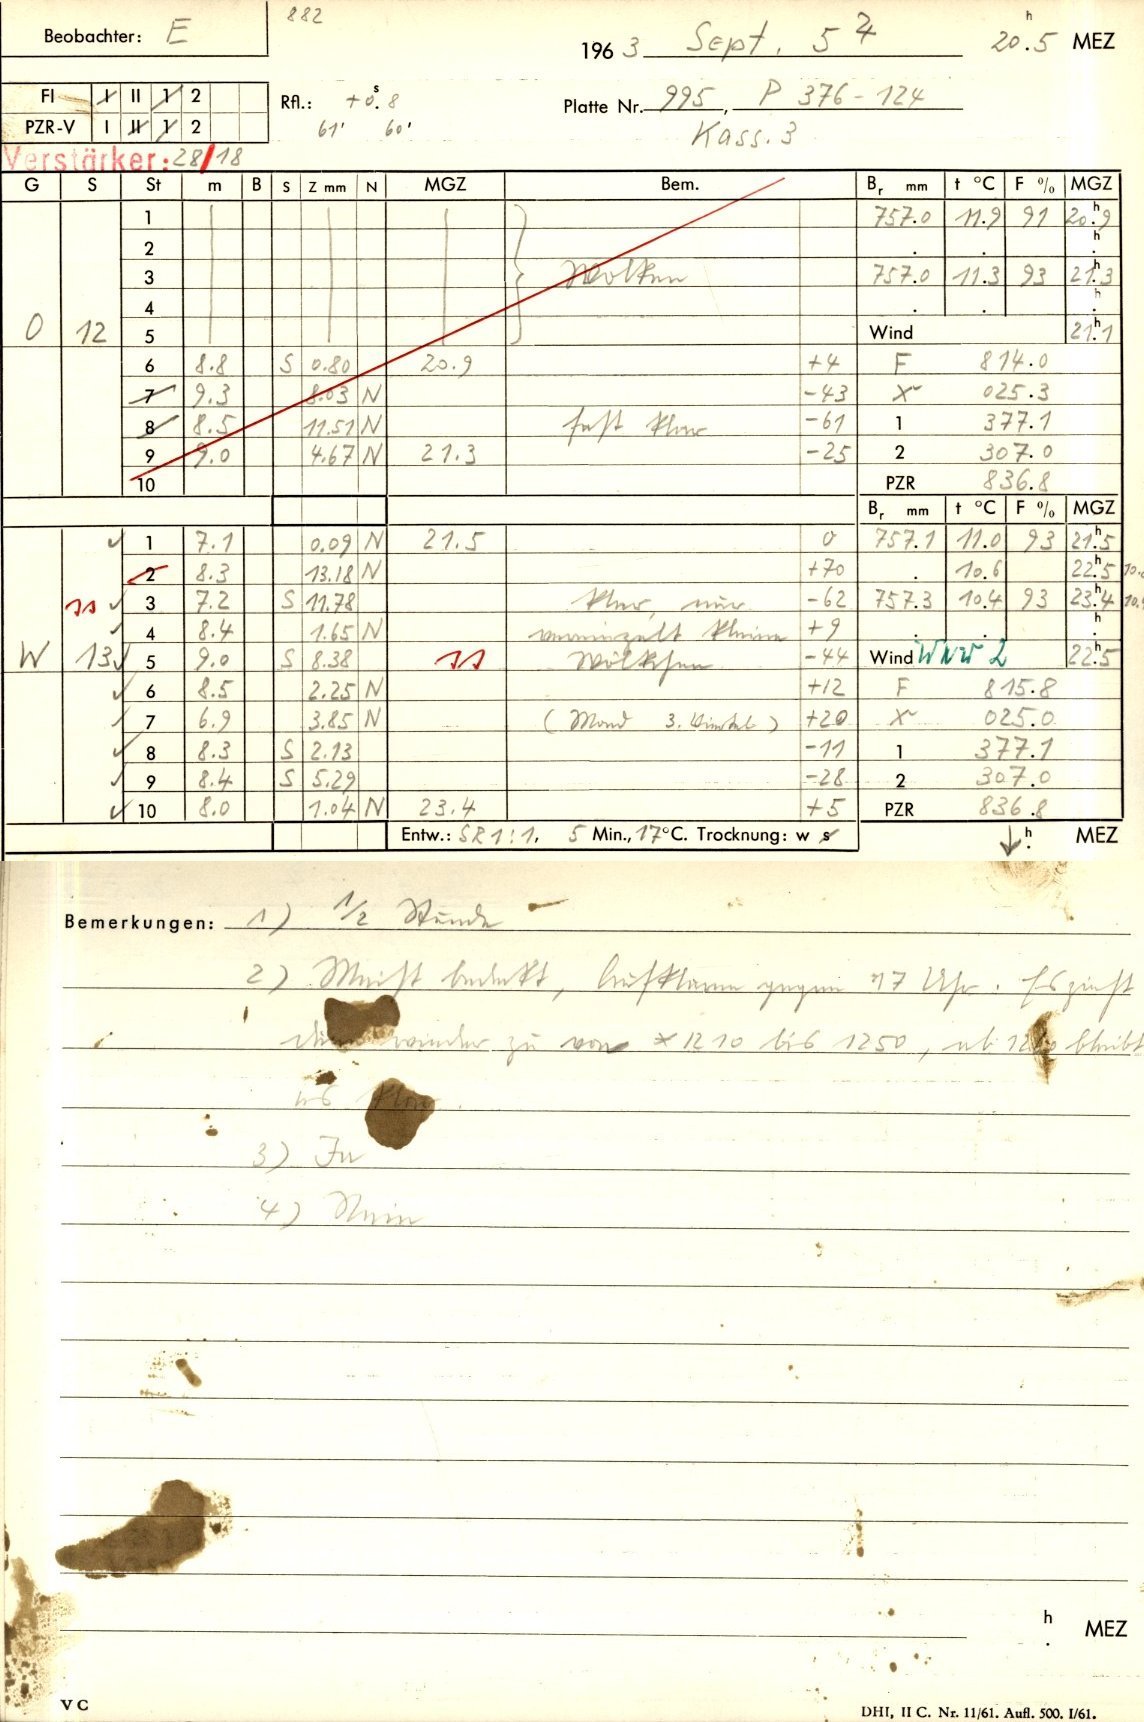 882
Beobachter: E
196 3 Sept. 5 20.5 h MEZ
FI I II 1 2
PZR-V I II 1 2
Rfl.: +0.8 s
61' 60'
Platte Nr. 995, P 376-124
Kass. 3
Verstärker: 28/18
G S St m B S Z mm N MGZ Bem. Br mm t °C F % MGZ
1 757.0 11.9 91 20.9 h
2 . . h
3 Wolken 757.0 11.3 93 21.3 h
4 . . h
O 12 5 Wind 21.1 h
6 8.8 S 0.80 20.9 +4 F 814.0
7 9.3 8.03 N -43 025.3
8 8.5 11.51 N fast klar -61 1 377.1
9 9.0 4.67 N 21.3 -25 2 307.0
10 PZR 836.8
Br mm t °C F % MGZ
1 7.1 0.09 N 21.5 0 757.1 11.0 93 21.5 h
2 8.3 13.18 N +70 . 10.6 22.5 h
3 7.2 S 11.78 klar, nur -62 757.3 10.4 93 23.4 h
4 8.4 1.65 N vereinzelt kleine +9 . . h
W 13 5 9.0 S 8.38 Wölkchen -44 Wind WNW 2 22.5 h
6 8.5 2.25 N +12 F 815.8
7 6.9 3.85 N (Mond 3. Viertel) +20 025.0
8 8.3 S 2.13 -11 1 377.1
9 8.4 S 5.29 -28 2 307.0
10 8.0 1.04 N 23.4 +5 PZR 836.8
Entw.: SR 1:1, 5 Min., 17°C. Trocknung: w s h MEZ
Bemerkungen: 1) 1/2 Stunde
2) Meist bedeckt, Aufklaren gegen 17 Uhr. Es zieht
wieder zu von *1210 bis 1250, ab bleibt
es klar.
3) Ja
4) Nein
h
. MEZ
V C
DHI, II C. Nr. 11/61. Aufl. 500. I/61.